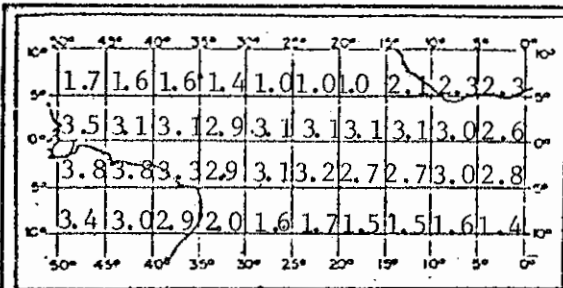 50° 45° 40° 35° 30° 25° 20° 15° 10° 5° 0°
10° 10°
1.7 1.6 1.6 1.4 1.0 1.0 1.0 2.1 2.3 2.3
5° 5°
3.5 3.1 3.1 2.9 3.1 3.1 3.1 3.1 3.0 2.6
0° 0°
3.8 3.8 3.3 2.9 3.1 3.2 2.7 2.7 3.0 2.8
5° 5°
3.4 3.0 2.9 2.0 1.6 1.7 1.5 1.5 1.6 1.4
10° 10°
50° 45° 40° 35° 30° 25° 20° 15° 10° 5° 0°